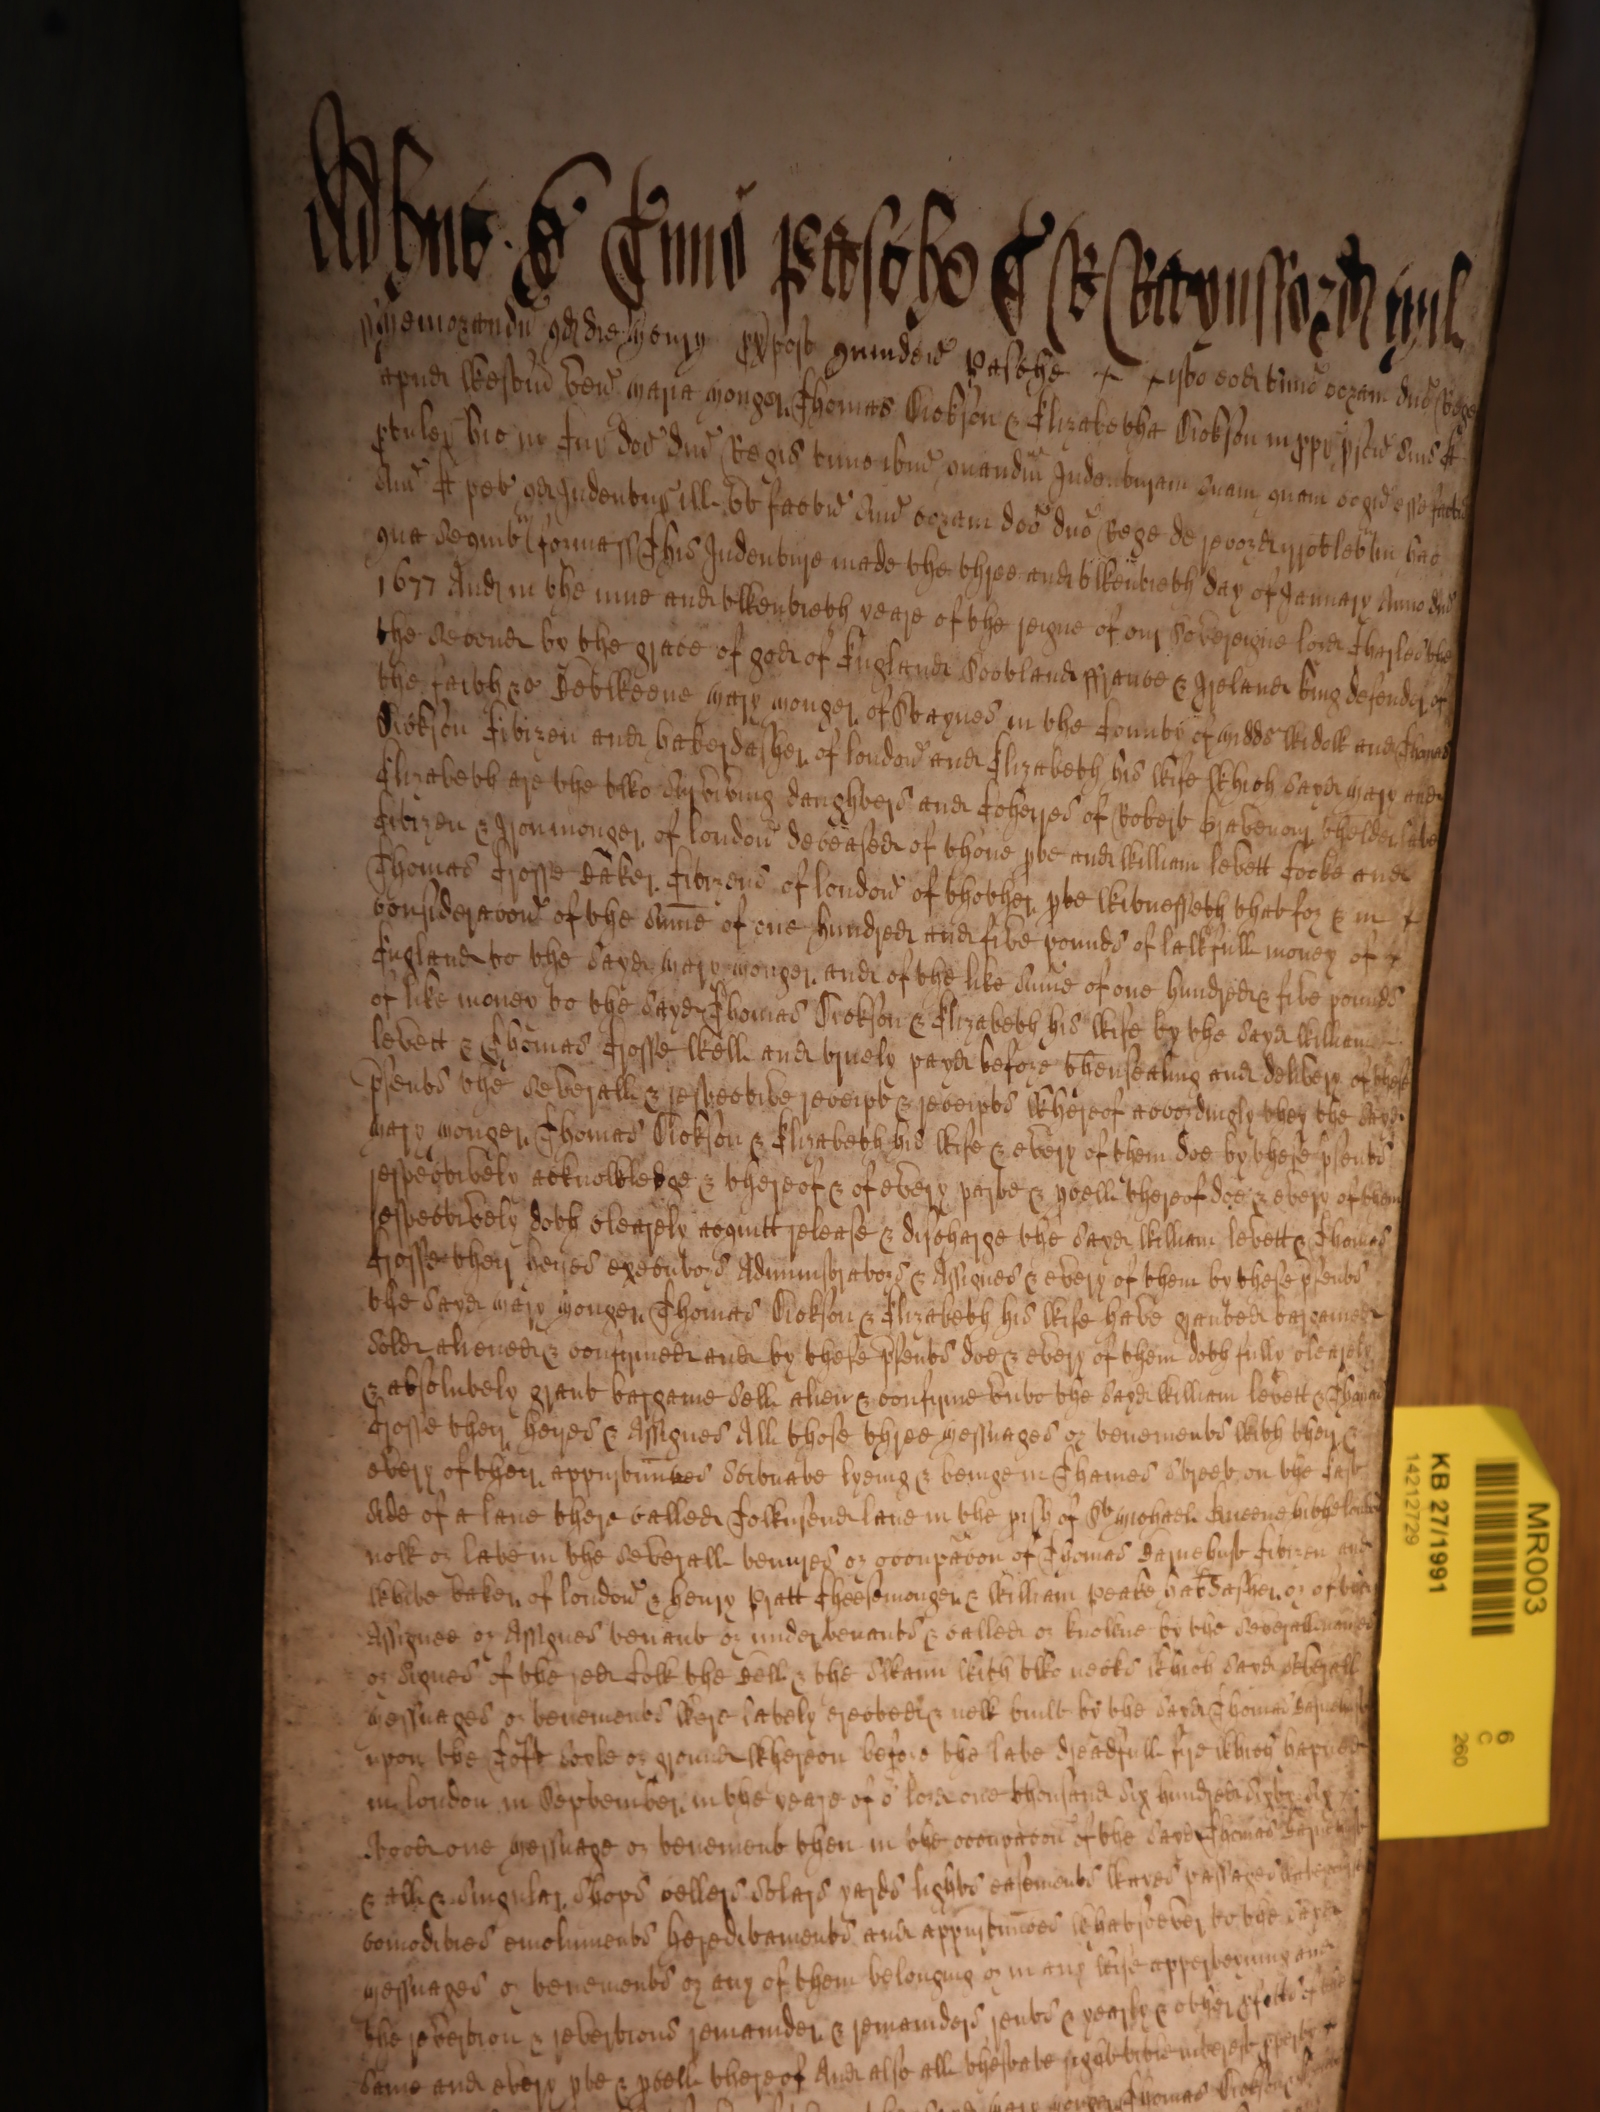 Adhuc de Termi Pasche C R Raynsford
Memorandu qd die
apud Westm ven Maria Monger Thomas Dickson & Elizabetha Dickson in ppr
hic in Cur dce dni Regis tunc ibm quandm Indenturam suam quam
Et pet qd Indentur ill
qua sequitr forma ss This Indenture made the three and twentieth day of January Anno dni
1677 And in the nine and twentieth yeare of the reigne of our Sovereigne lord Charles the
the second by the grace of god of England Scotland ffrance & Ireland king defender of
the faith &c Betweene Mary Monger of Staynes in the County of Midds Widow and Thomas
Dickson Citizen and haberdasher of london and Elizabeth his wife which sayd Mary and
Elizabeth are the two surviving daughters and Coheires of Robert thelder late
Citizen & Ironmonger of london deceased of thone pte and William levett Cooke and
Thomas Crosse Baker Citizens of london of thother pte Witnesseth that for & in
consideracon of the sume of one hundred and five pounds of lawfull money of
England to the sayd Mary Monger and of the like sume of one hundred & five pounds
of like money to the sayd Thomas Dickson & Elizabeth his wife by the sayd William
levett & Thomas Crosse well and truely payd before thensealing and delivery of these
psents the severall & respective receipt & receipts whereof accordingly they the sayd
Mary Monger Thomas Dickson & Elizabeth his wife & every of them doe by these psents
respectively acknowledge & thereof & of every parte & pcell thereof doe & every of them
respectively doth clearely acquitt release & discharge the sayd William levett & Thomas
Crosse their heires executors Administrators & Assignes & every of them by these psents
the sayd Mary Monger Thomas Dickson & Elizabeth his wife have granted bargained
sold aliened & confirmed and by these psents doe & every of them doth fully clearely
& absolutely grant bargaine sell alien & confirme unto the sayd William levett & Thomas
Crosse their heires & Assignes All those three Messuages or tenements with their &
every of their appurtunces scituate lyeing & being in Thames Street on the East
side of a lane there called lane in the pish of St Michaell Queene hithe london
now or late in the severall tenures or occupacon of Thomas Citizen and
white baker of london & Henry Pratt Cheesemonger & William Peake habdasher or of their
Assignee or Assignes tenant or under tenants & called or knowne by the severall names
or signes of the red Cow the Bell & the Swann with two necks which sayd severall
Messuages or tenements were lately erected & new built by the sayd Thomas
upon the Toft soyle or ground whereon before the late dreadfull fire which happned
in london in September in the yeare of or lord one thousand six hundred sixty six
stood one Messuage or tenement then in the occupacon of the sayd Thomas
& all & singular shops cellers solars yards lights easements wayes passages
comodities emoluments hereditaments and appurtunces whatsoever to the sayd
messuages or tenements or any of them belonging or in any wise apperteyning and
the revertion & revertions remainder & remainders rents & yearly & other pfitts of the
same and every pte & pcell thereof And also all thestate right title interest
Mary Monger Thomas Dickson &
MR003
KB 27/1991
14212729
6
C
260